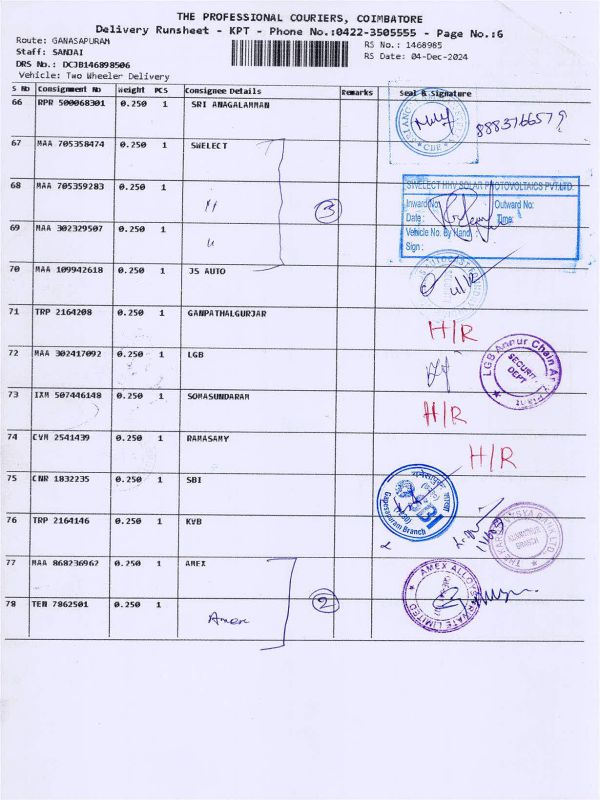 THE PROFESSIONAL COURIERS, COIMBATORE
Delivery Runsheet - KPT - Phone No.:0422-3505555 - Page No.:6
Route: GANASAPURAM
RS No.: 1468985
Staff: SANJAI
RS Date: 04-Dec-2024
DRS No.: DCJB146898506
Vehicle: Two Wheeler Delivery
S No Consignment No Weight PCS Consignee Details Remarks Seal & Signature
66 RPR 500068301 0.250 1 SRI ANAGALAMMAN
8883766579
CBE
67 MAA 705358474 0.250 1 SWELECT
68 MAA 705359283 0.250 1 〃
3
SWELECT HHV SOLAR PHOTOVOLTAICS PVT.LTD.
Inward No: Outward No:
Date: Time:
Vehicle No. By Hand:
Sign:
69 MAA 302329507 0.250 1 〃
70 MAA 109942618 0.250 1 JS AUTO
71 TRP 2164208 0.250 1 GANPATHALGURJAR
H/R
72 MAA 302417092 0.250 1 LGB
LGB Annur Chain
SECURITY
DEPT
73 IXM 507446148 0.250 1 SOMASUNDARAM
H/R
74 CVM 2541439 0.250 1 RAMASAMY
H/R
75 CNR 1832235 0.250 1 SBI
SBI
Ganesapuram Branch
76 TRP 2164146 0.250 1 KVB
THE KARUR VYSYA BANK LTD
BRANCH
77 MAA 868236962 0.250 1 AMEX
78 TEN 7862501 0.250 1 Amex
2
AMEX ALLOYS PRIVATE LIMITED